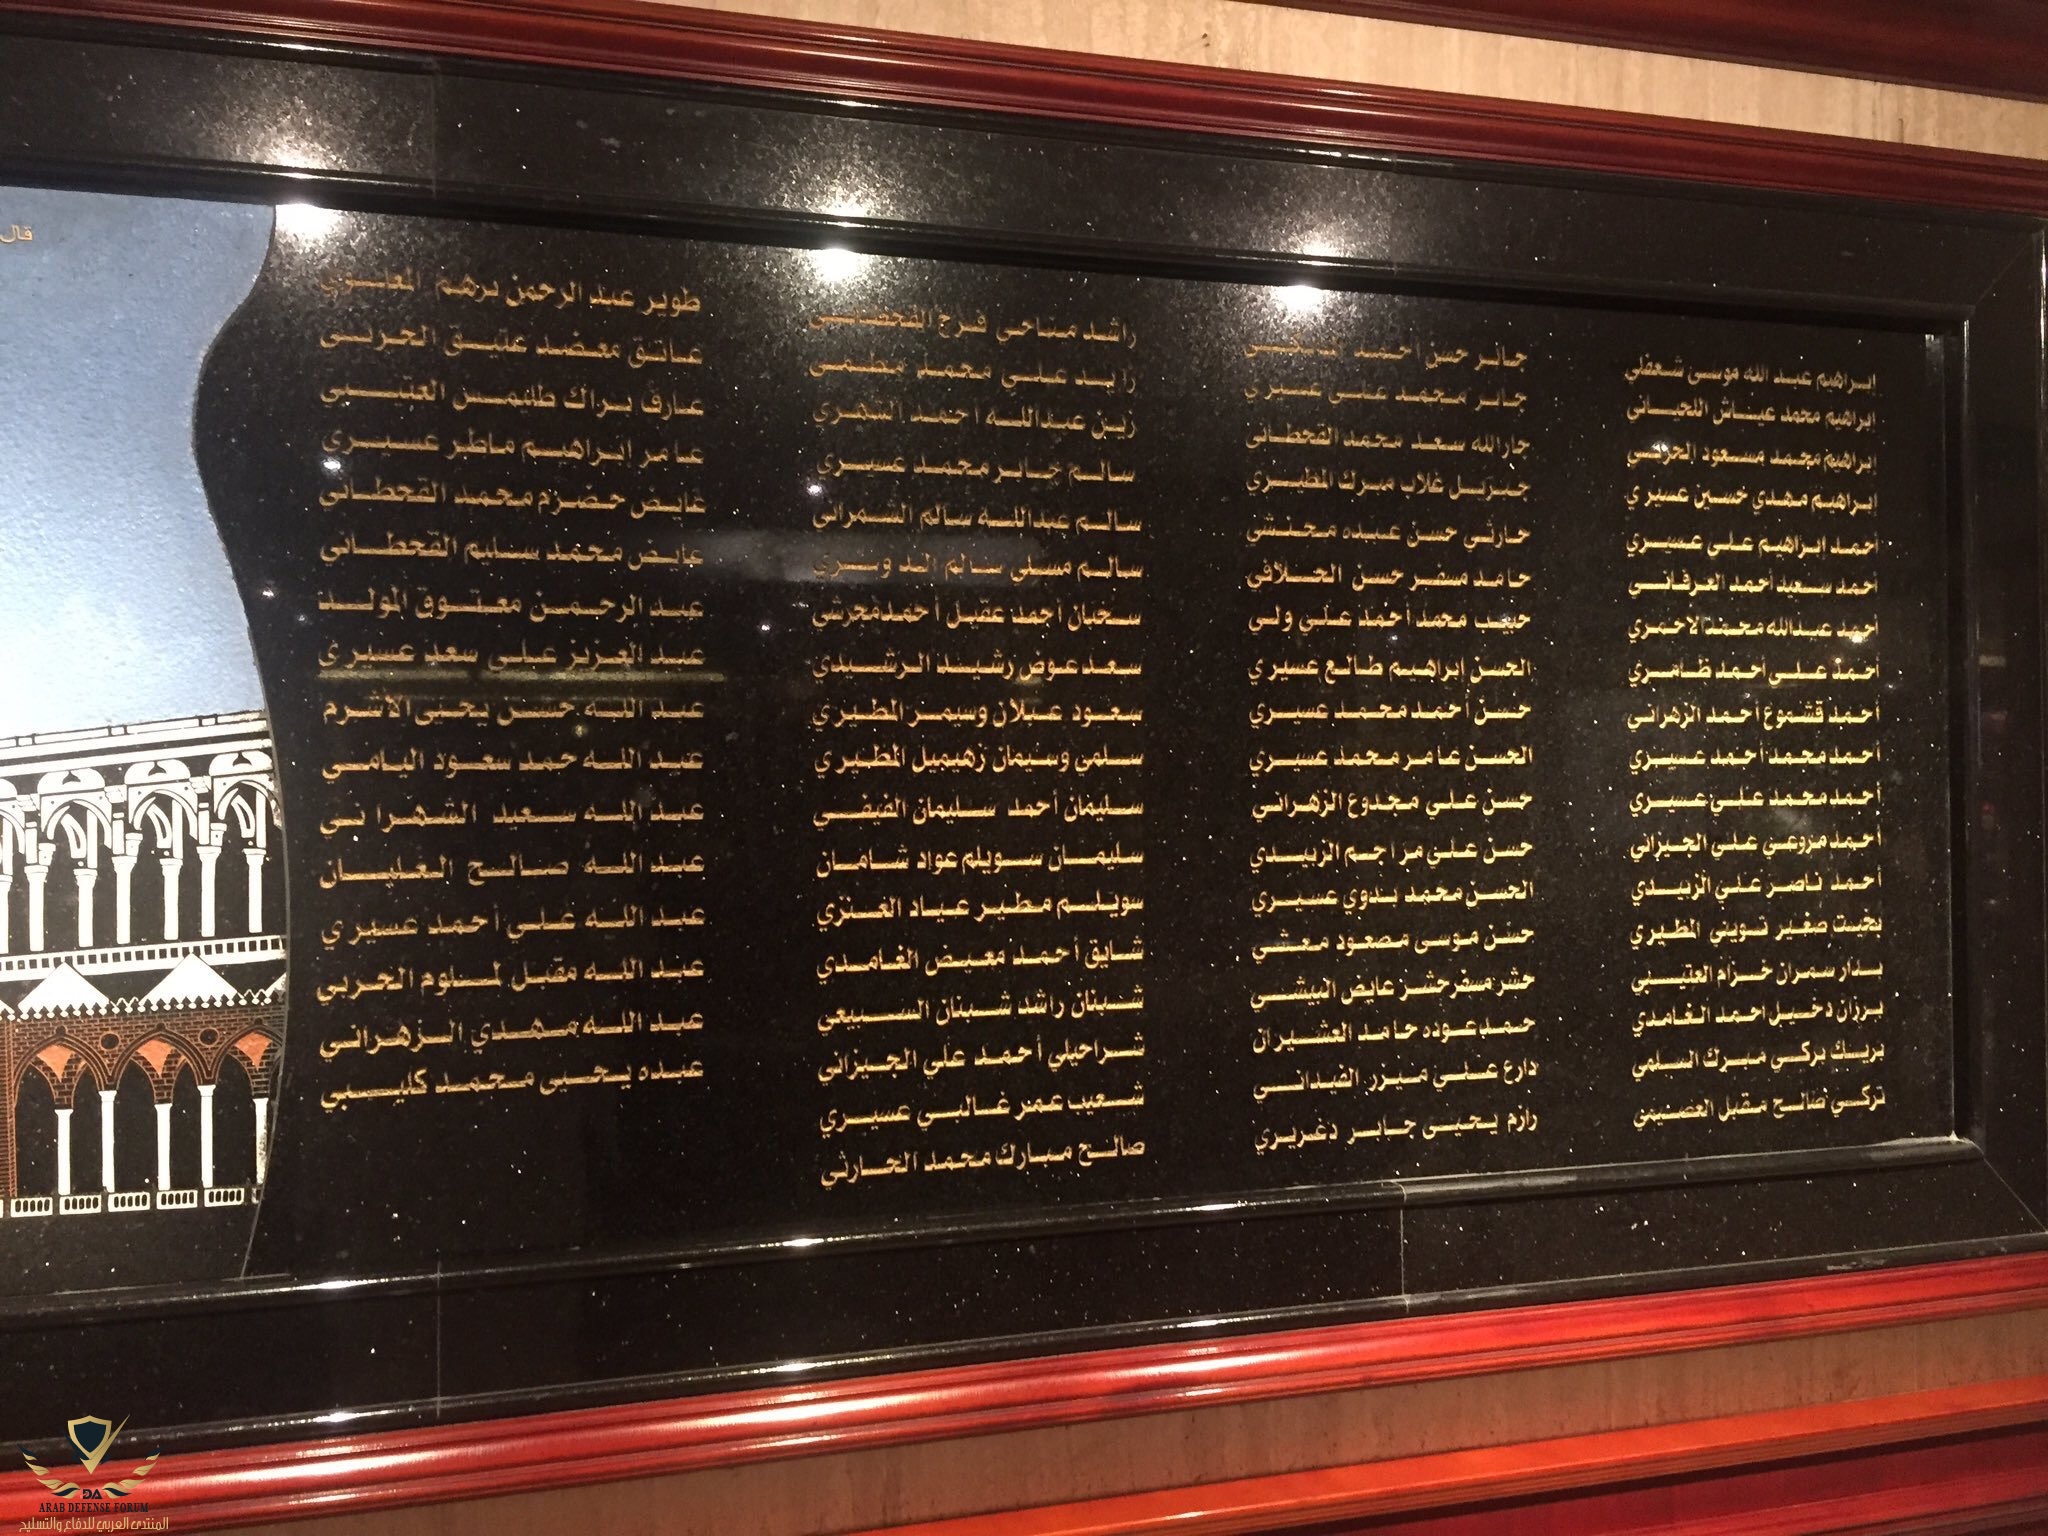 ابراهيم عبد الله موسى شعفلي
ابراهيم محمد عيناش اللحياني
ابراهيم محمد مسعود الحربي
ابراهيم مهدي حسين عسيري
أحمد ابراهيم علي عسيري
أحمد سعيد أحمد العرفاني
أحمد عبدالله محمد الاحمري
أحمد علي أحمد ظامري
أحمد قشموع أحمد الزهراني
أحمد محمد أحمد عسيري
أحمد محمد علي عسيري
أحمد مزوعي علي الجيزاني
أحمد ناصر علي الزبيدي
بخيت صغير تويني المطيري
بدار سمران خزام العتيبي
برزان دخيل احمد الغامدي
بريك بركي مبرك السلمي
تركي صالح مقبل العصيمي
جابر حسن احمد
جابر محمد علي عسيري
جارالله سعد محمد القحطاني
جبريل غلاب مبرك المطيري
حارثي حسن عبده محنشي
حامد مسفر حسن الحلافي
حبيب محمد أحمد علي ولي
الحسن ابراهيم طالع عسيري
حسن أحمد محمد عسيري
الحسن عامر محمد عسيري
حسن علي مجدوع الزهراني
حسن علي مراجم الزبيدي
الحسن محمد بدوي عسيري
حسن موسى مصعود معشي
حشر مسفر حشر عايض البيشي
حمد عوده حامد العشيران
دارع علي منزر الفيداني
رازم يحيى جابر دغريري
راشد مناحي فرج القحطاني
زايد علي محمد مطمي
زين عبدالله احمد الشهري
سالم جابر محمد عسيري
سالم عبدالله سالم الشمراني
سالم مسلي سالم الدوسري
سحبان أحمد عقيل أحمد محرشي
سعد عوض رشيد الرشيدي
سعود عبلان وسيمز المطيري
سلمي وسيمان زهيميل المظيري
سليمان أحمد سليمان الفيفي
سليمان سويلم عواد شامان
سويلم مطير عياد العنزي
شايق أحمد معيض الغامدي
شبنان راشد شبنان السبيعي
شراحيلي أحمد علي الجيزاني
شعيب عمر غالبي عسيري
صالح مبارك محمد الحارثي
طوير عبد الرحمن برهم
عاتق معضد عتيق الحربي
عارف براك طليمس العتيبي
عامر ابراهيم ماطر عسيري
عايض حضرم محمد القحطاني
عايض محمد سليم القحطاني
عبد الرحمن معتوق المولد
عبد العزيز علي سعد عسيري
عبد الله حسن يحيى الأشرم
عبد الله حمد سعود اليامي
عبد الله سعيد الشهراني
عبد الله صالح العليان
عبد الله علي أحمد عسيري
عبد الله مقبل لملوم الحربي
عبد الله مهدي الزهراني
عبده يحيى محمد كليبي
قال
DA
ARAB DEFENSE FORUM
المنتدى العربي للدفاع والتسليح